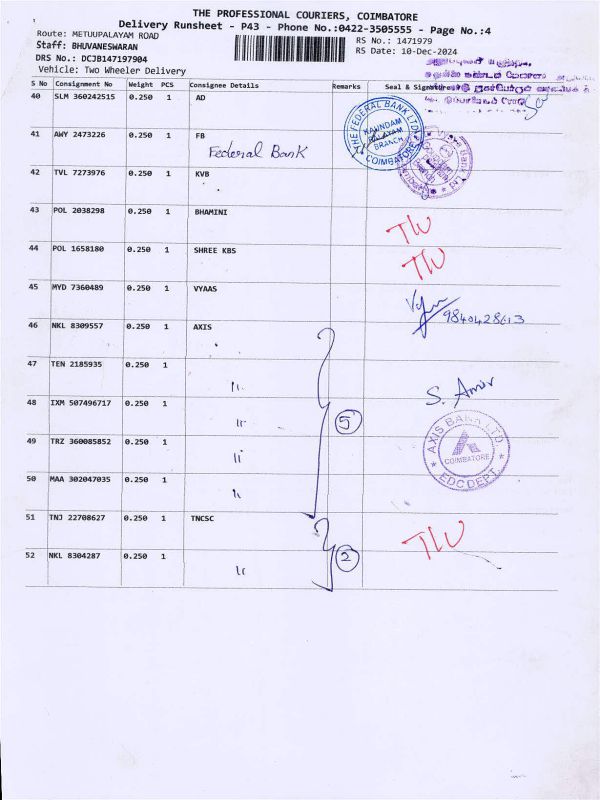 THE PROFESSIONAL COURIERS, COIMBATORE
Delivery Runsheet - P43 - Phone No.:0422-3505555 - Page No.:4
Route: METUUPALAYAM ROAD
RS No.: 1471979
Staff: BHUVANESWARAN
RS Date: 10-Dec-2024
DRS No.: DCJB147197904
Vehicle: Two Wheeler Delivery
S No Consignment No Weight PCS Consignee Details Remarks Seal & Signature
40 SLM 360242515 0.250 1 AD
THE FEDERAL BANK LTD.
KAUNDAM
PALAYAM
BRANCH
COIMBATORE
41 AWY 2473226 0.250 1 FB
Federal Bank
42 TVL 7273976 0.250 1 KVB
43 POL 2038298 0.250 1 BHAMINI
44 POL 1658180 0.250 1 SHREE KBS
45 MYD 7360489 0.250 1 VYAAS
9840428613
46 NKL 8309557 0.250 1 AXIS
47 TEN 2185935 0.250 1
"
48 IXM 507496717 0.250 1
" 5
49 TRZ 360085852 0.250 1
"
50 MAA 302047035 0.250 1
"
AXIS BANK LTD
COIMBATORE
EDC DEPT.
51 TNJ 22708627 0.250 1 TNCSC
52 NKL 8304287 0.250 1
" 2